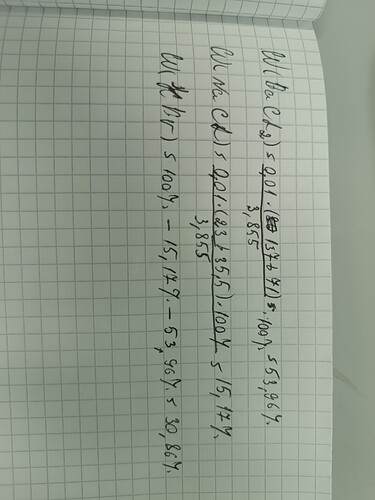 W(BaCl2) = 0,01·(137+71)/3,855 · 100% = 53,96%
W(NaCl) = 0,01·(23+35,5)·100%/3,855 = 15,17%
W(KBr) = 100% - 15,17% - 53,96% = 30,86%